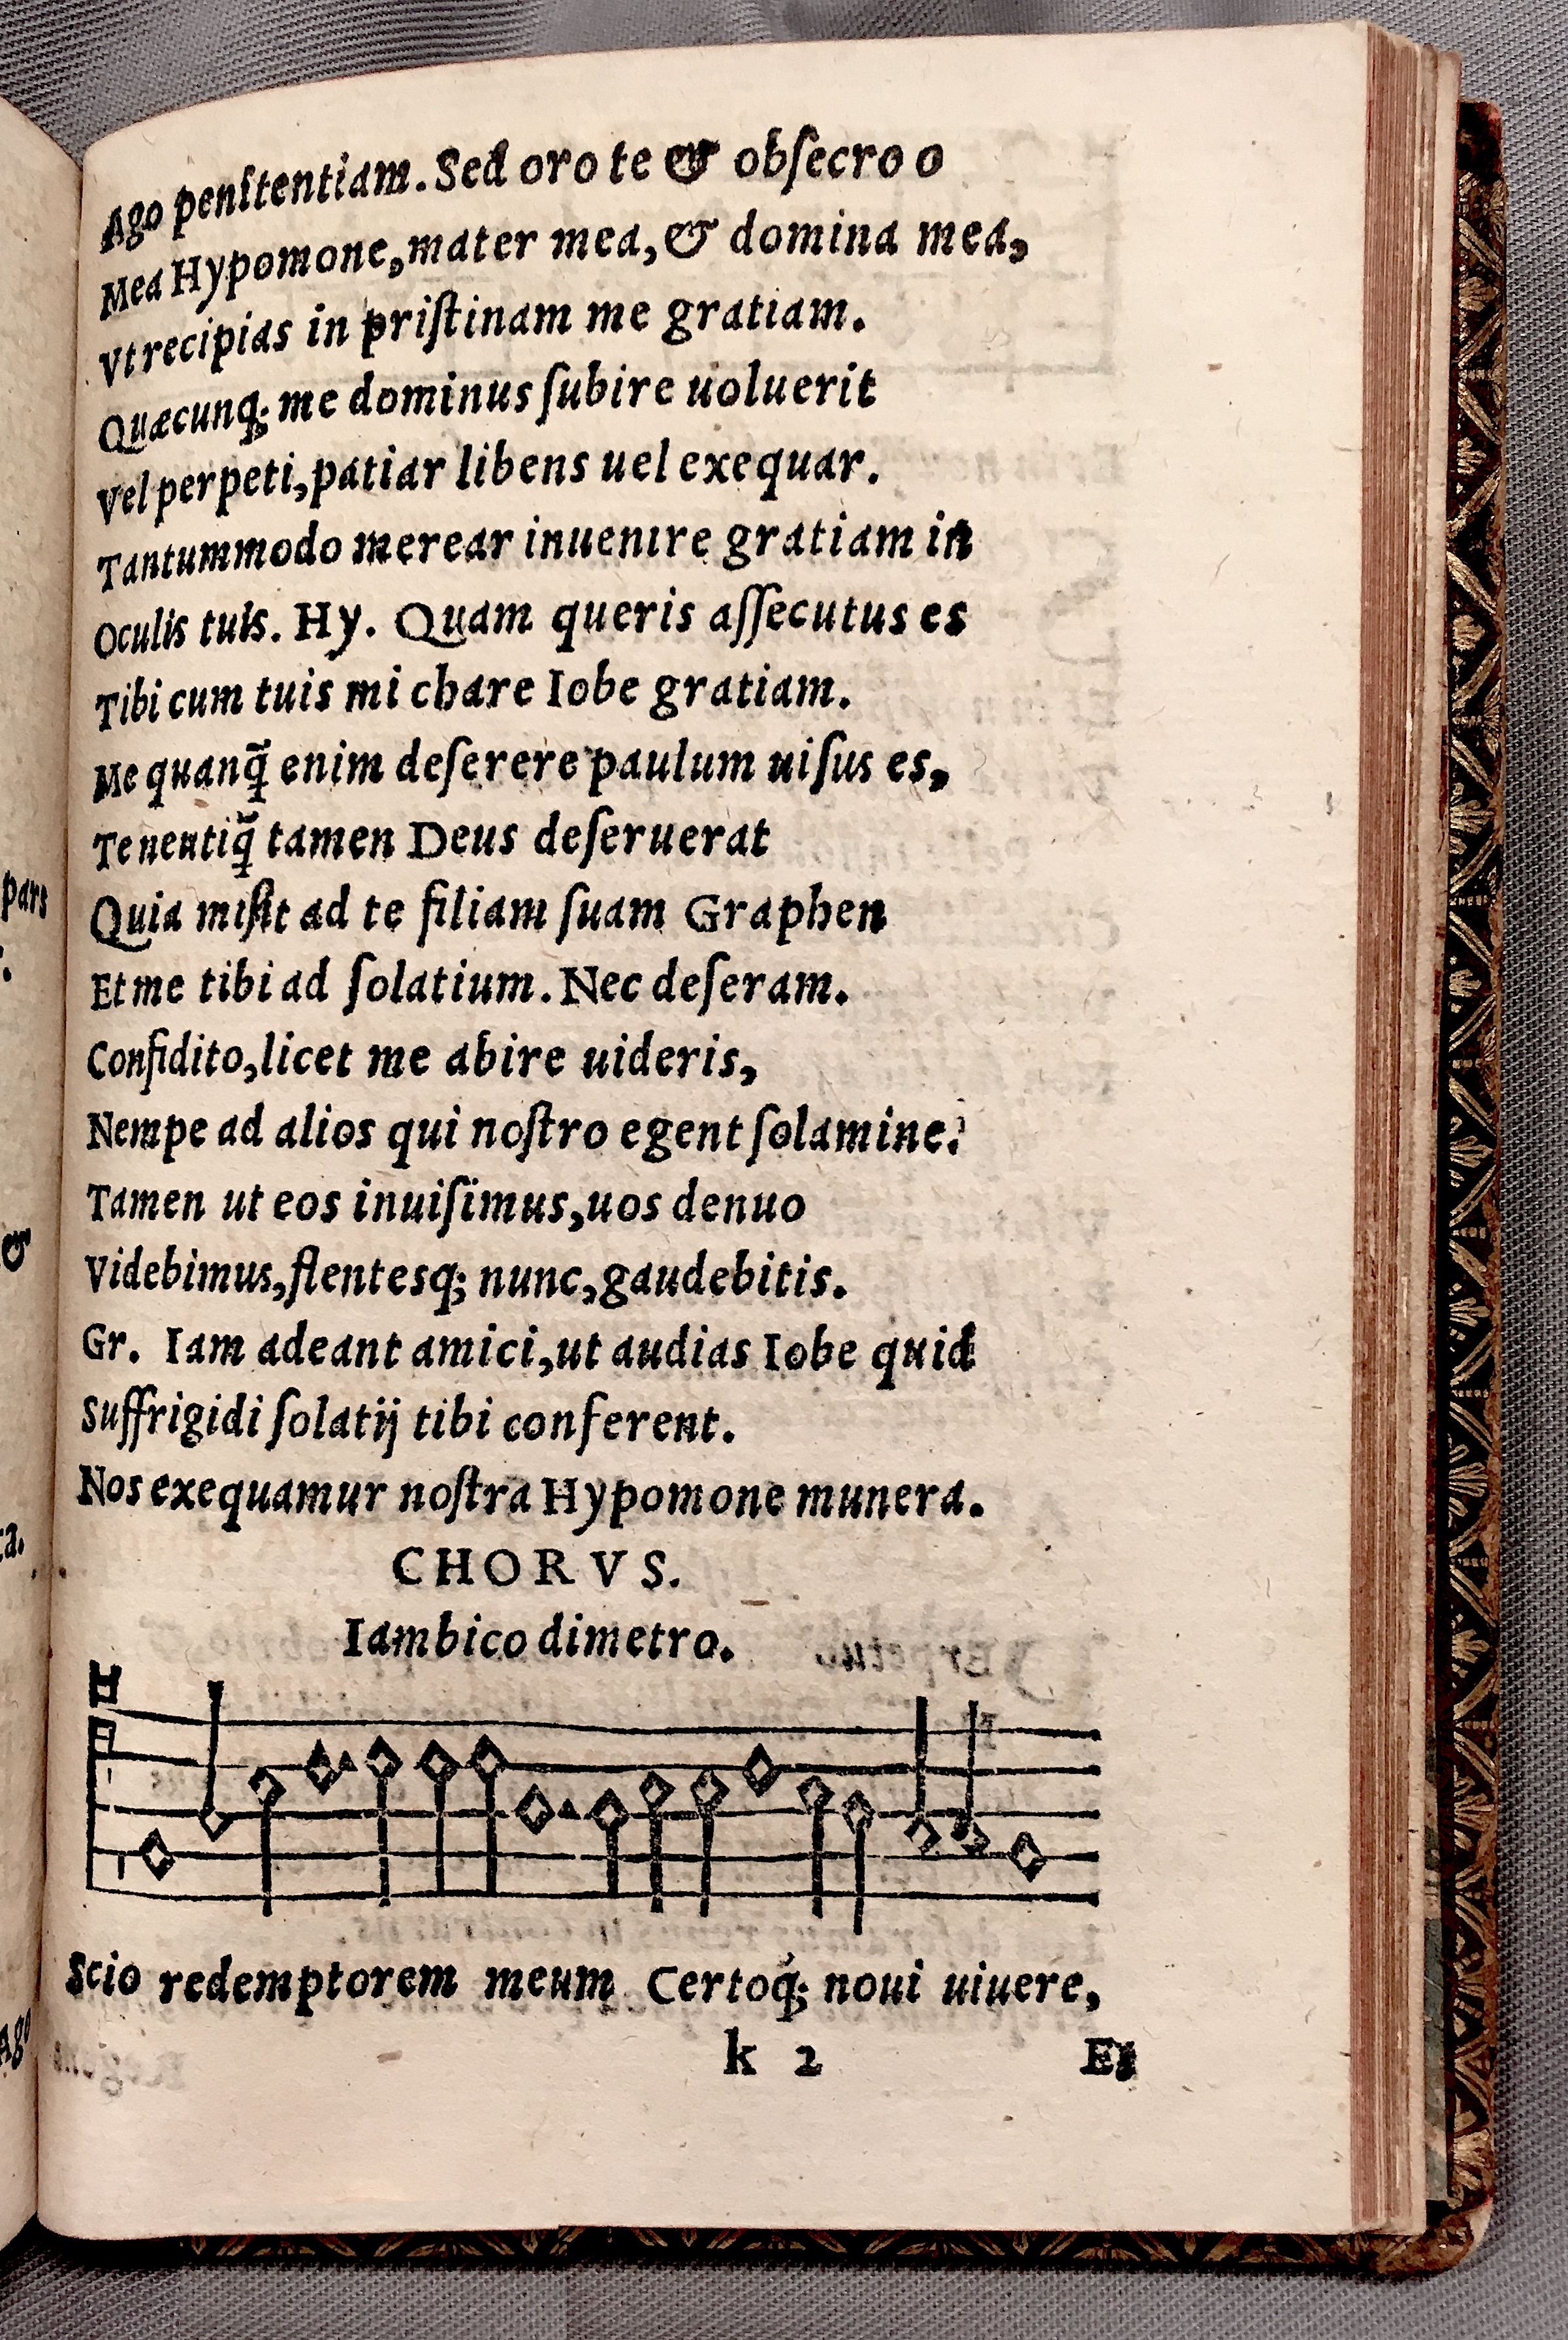 Ago penitentiam. Sed oro te & obſecro o
Mea Hypomone, mater mea, & domina mea,
Vt recipias in priſtinam me gratiam.
Quæcunq; me dominus ſubire uoluerit
Vel perpeti, patiar libens uel exequar.
Tantummodo merear inuenire gratiam in
Oculis tuis. Hy. Quam queris aſſecutus es
Tibi cum tuis mi chare Iobe gratiam.
Me quanq̃ enim deſerere paulum uiſus es,
Te neutiq̃ tamen Deus deſeruerat
Quia miſit ad te filiam ſuam Graphen
Et me tibi ad ſolatium. Nec deſeram.
Confidito, licet me abire uideris,
Nempe ad alios qui noſtro egent ſolamine:
Tamen ut eos inuiſimus, uos denuo
Videbimus, flentesq; nunc, gaudebitis.
Gr. Iam adeant amici, ut audias Iobe quid
Suffrigidi ſolatij tibi conferent.
Nos exequamur noſtra Hypomone munera.
CHORVS.
Iambico dimetro.
Scio redemptorem meum Certoq́; noui uiuere,
k 2
pars
&
ta.
Ago